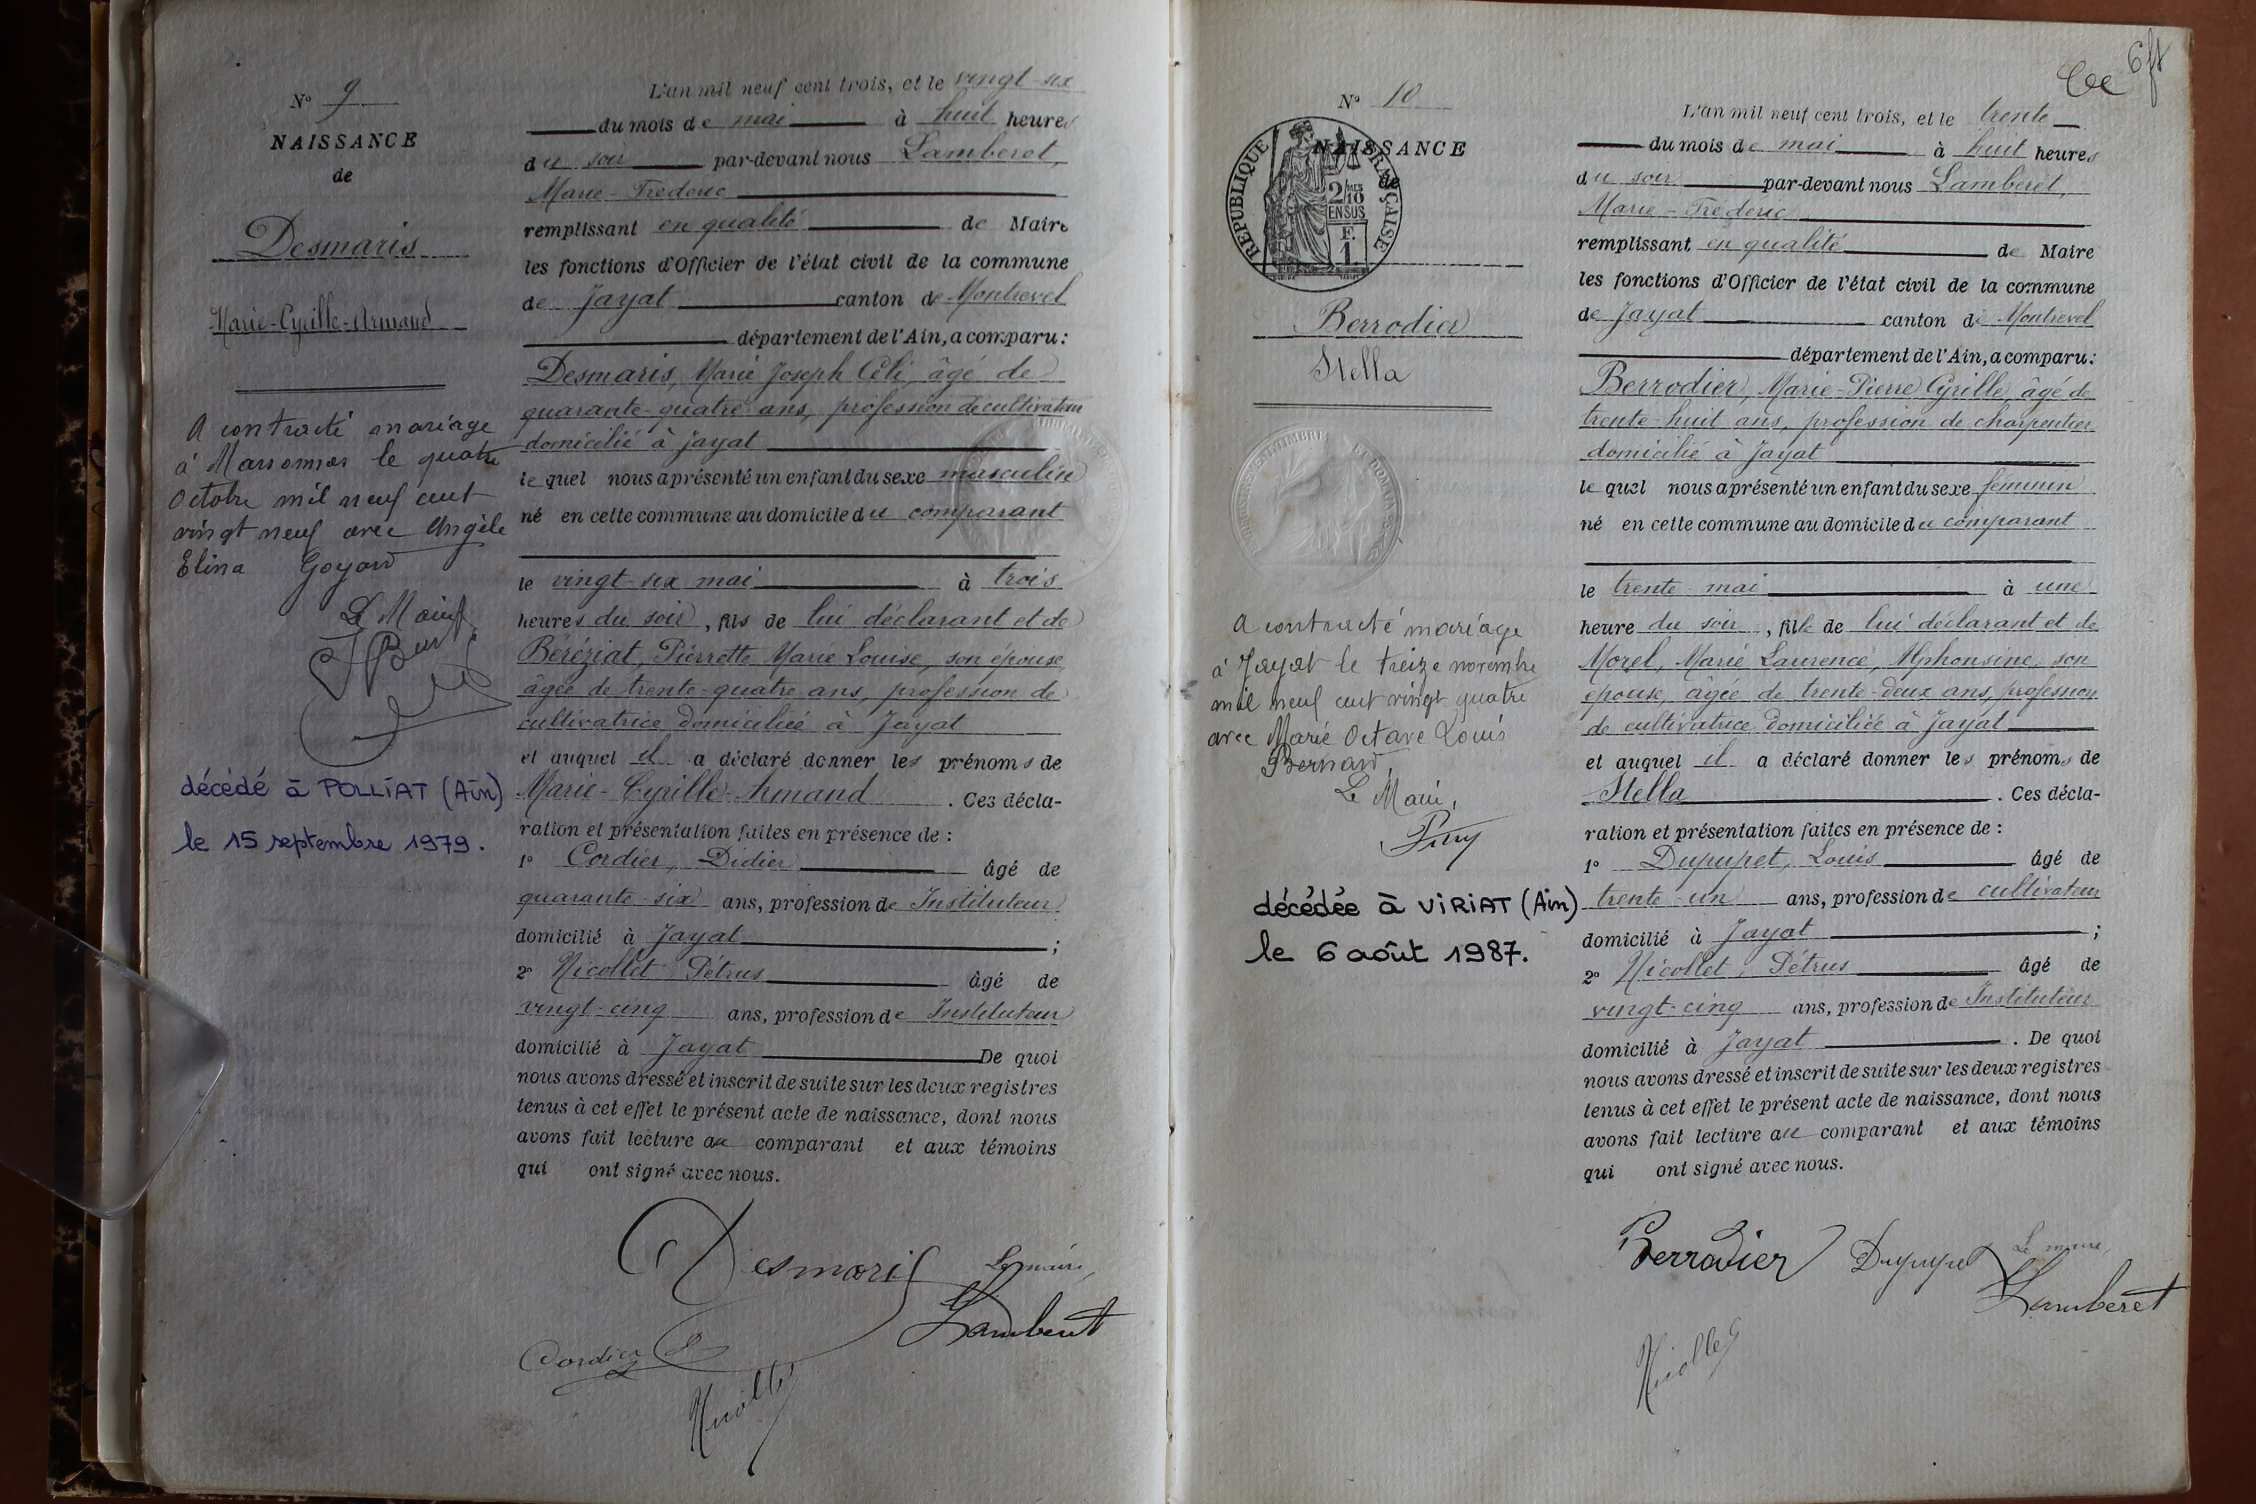 N° 9
NAISSANCE
de
Desmaris
Marie-Cyrille-Armand
A contracté mariage
à Marsonnas le quatre
Octobre mil neuf cent
vingt neuf avec Angèle
Elina Goyard
Le Maire
décédé à POLLIAT (Ain)
le 15 septembre 1979.
L'an mil neuf cent trois, et le vingt-six
du mois de mai à huit heures
du soir par-devant nous Lamberet,
Marie-Frédéric
remplissant en qualité de Maire
les fonctions d'Officier de l'état civil de la commune
de Jayat canton de Montrevel
département de l'Ain, a comparu:
Desmaris, Marie Joseph Céli, âgé de
quarante-quatre ans, profession de cultivateur
domicilié à Jayat
lequel nous a présenté un enfant du sexe masculin
né en cette commune au domicile du comparant
le vingt-six mai à trois
heures du soir, fils de lui déclarant et de
Béréziat, Pierrette Marie Louise, son épouse,
âgée de trente-quatre ans, profession de
cultivatrice domiciliée à Jayat
et auquel il a déclaré donner les prénoms de
Marie-Cyrille-Armand. Ces décla-
ration et présentation faites en présence de :
1° Cordier, Didier âgé de
quarante-six ans, profession de Instituteur
domicilié à Jayat ;
2° Nicollet, Pétrus âgé de
vingt-cinq ans, profession de Instituteur
domicilié à Jayat De quoi
nous avons dressé et inscrit de suite sur les deux registres
tenus à cet effet le présent acte de naissance, dont nous
avons fait lecture au comparant et aux témoins
qui ont signé avec nous.
Desmaris Le maire,
Lamberet
Cordier D
Nicollet
6 ft
N° 10
NAISSANCE
de
RÉPUBLIQUE FRANÇAISE
2/10
EN SUS
F.
1
Berrodier
Stella
A contracté mariage
à Jayat le treize novembre
mil neuf cent vingt quatre
avec Marie Octave Louis
Bernard,
Le Maire,
décédée à VIRIAT (Ain)
le 6 août 1987.
L'an mil neuf cent trois, et le trente
du mois de mai à huit heures
du soir par-devant nous Lamberet,
Marie-Frédéric
remplissant en qualité de Maire
les fonctions d'Officier de l'état civil de la commune
de Jayat canton de Montrevel
département de l'Ain, a comparu:
Berrodier, Marie-Pierre Cyrille, âgé de
trente-huit ans, profession de charpentier
domicilié à Jayat
lequel nous a présenté un enfant du sexe féminin
né en cette commune au domicile du comparant
le trente mai à une
heure du soir, fille de lui déclarant et de
Morel, Marie Laurence, Alphonsine, son
épouse, âgée de trente-deux ans, profession
de cultivatrice domiciliée à Jayat
et auquel il a déclaré donner les prénoms de
Stella. Ces décla-
ration et présentation faites en présence de :
1° Dupupet, Louis âgé de
trente-un ans, profession de cultivateur
domicilié à Jayat ;
2° Nicollet, Pétrus âgé de
vingt-cinq ans, profession de Instituteur
domicilié à Jayat. De quoi
nous avons dressé et inscrit de suite sur les deux registres
tenus à cet effet le présent acte de naissance, dont nous
avons fait lecture au comparant et aux témoins
qui ont signé avec nous.
Berrodier Dupupet Le maire,
Lamberet
Nicollet